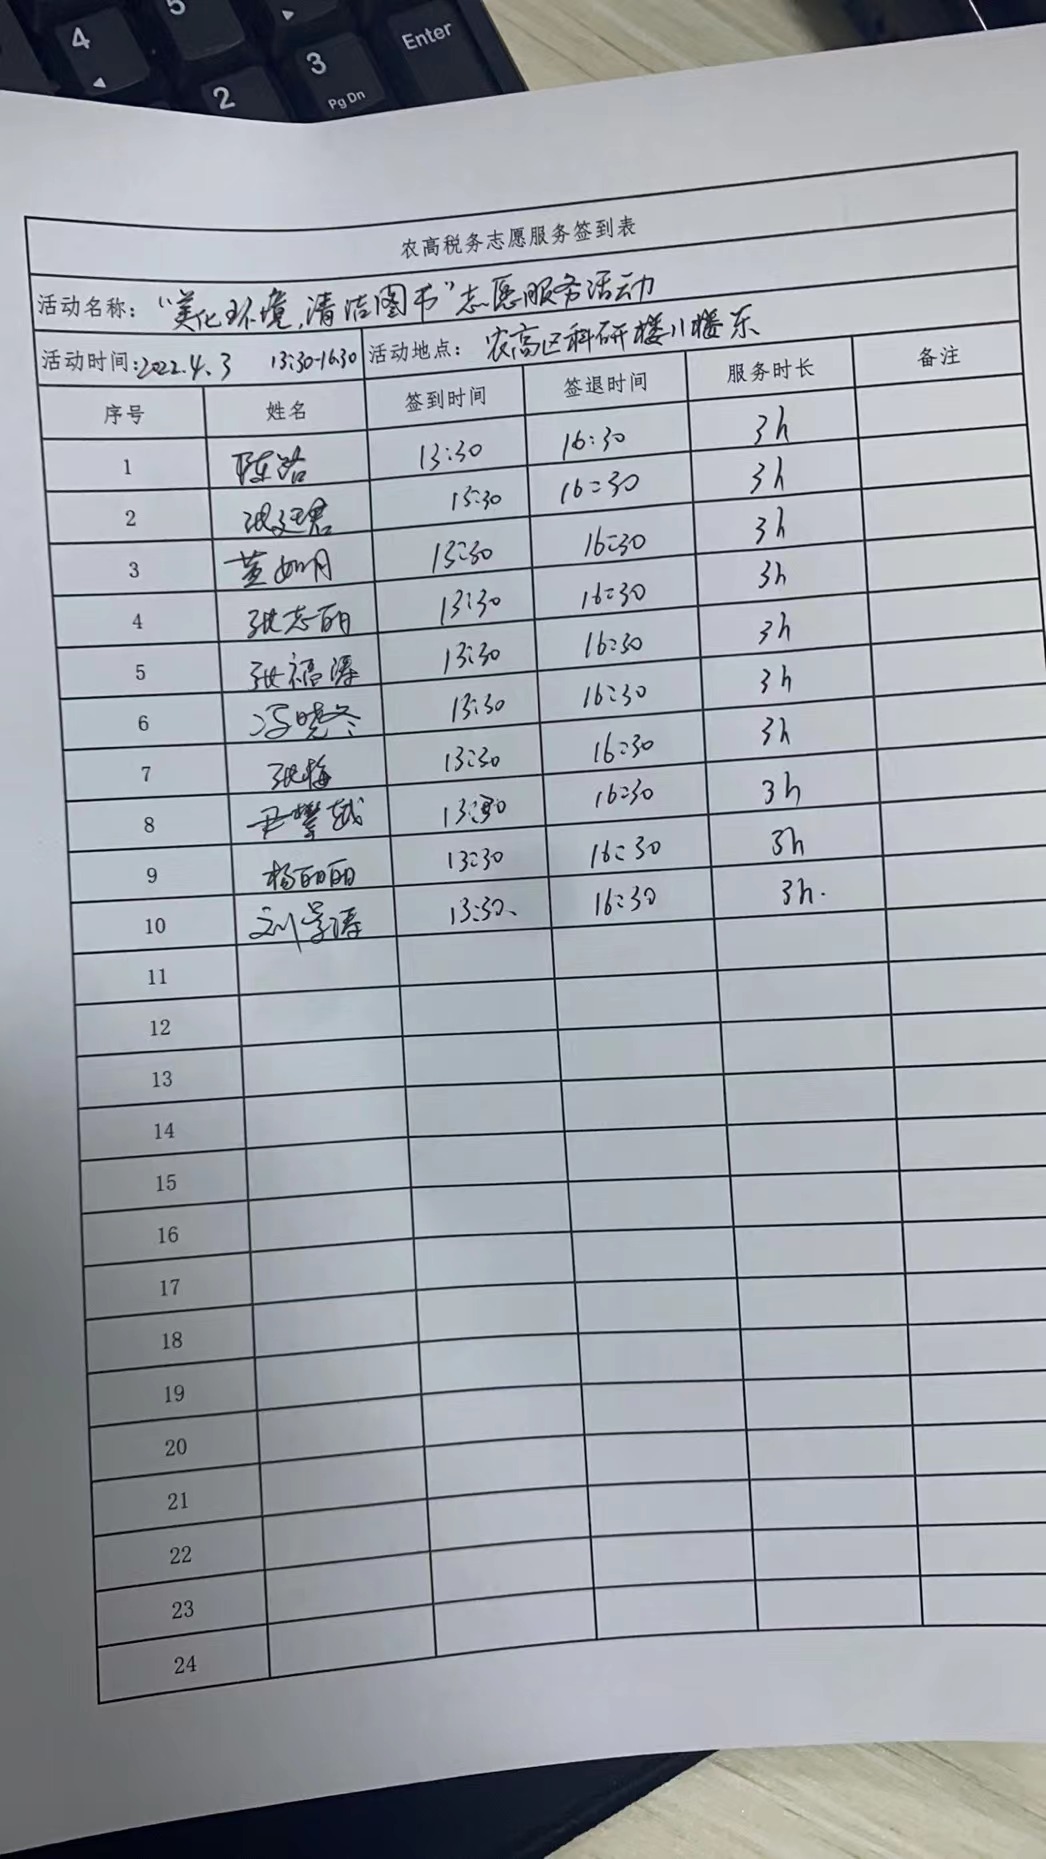 4
5
Enter
3
Pg Dn
2
农高税务志愿服务签到表
活动名称: "美化环境,清洁图书"志愿服务活动
活动时间:2022.4.3 13:30-16:30 活动地点: 农高区科研楼八楼东
序号 姓名 签到时间 签退时间 服务时长 备注
1 陈浩 13:30 16:30 3h
2 13:30 16:30 3h
3 董如月 13:30 16:30 3h
4 张志丽 13:30 16:30 3h
5 张福泽 13:30 16:30 3h
6 冯晓冬 13:30 16:30 3h
7 张梅 13:30 16:30 3h
8 尹攀越 13:30 16:30 3h
9 杨丽丽 13:30 16:30 3h
10 刘学涛 13:30、 16:30 3h.
11
12
13
14
15
16
17
18
19
20
21
22
23
24